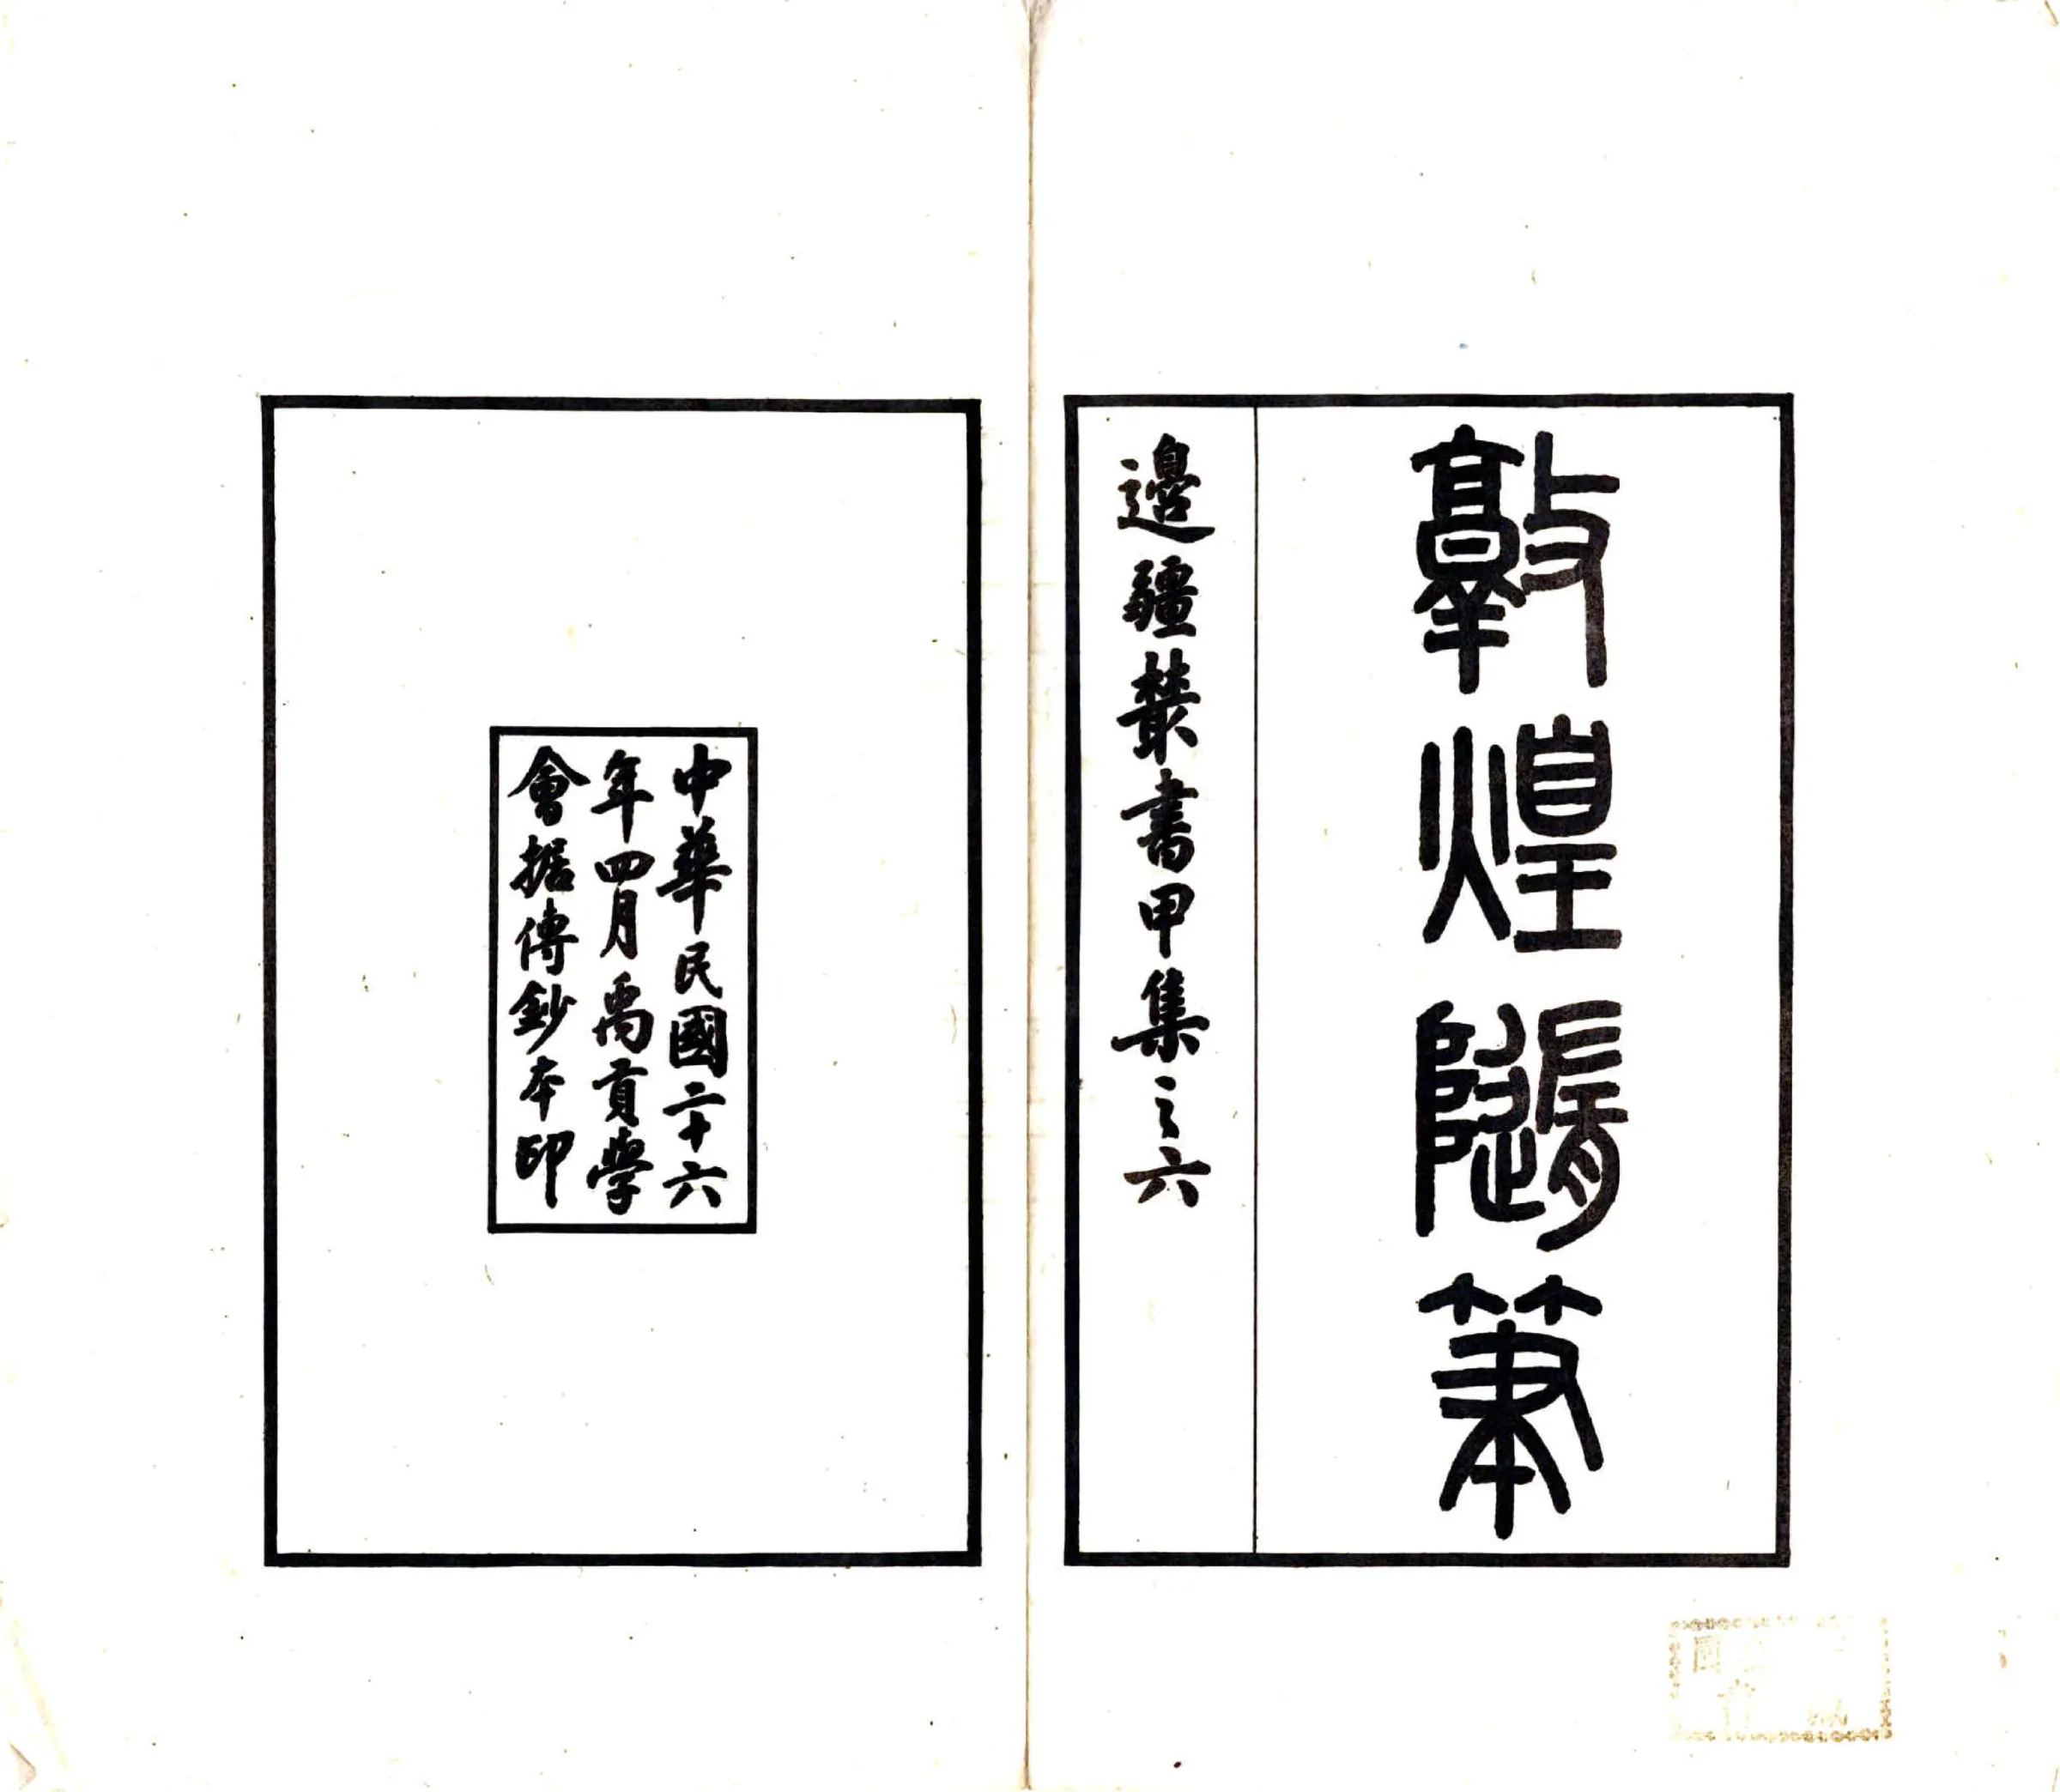 敦煌隨筆
邊疆叢書甲集之六
中華民國二十六
年四月禹貢學
會據傳鈔本印